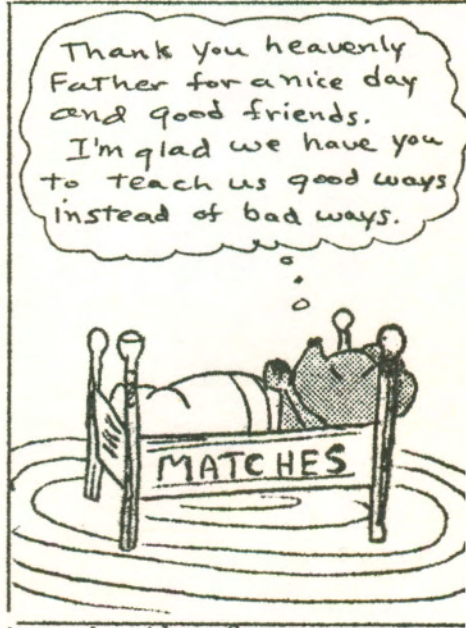 Thank you heavenly
Father for a nice day
and good friends.
I'm glad we have you
to teach us good ways
instead of bad ways.
MATCHES